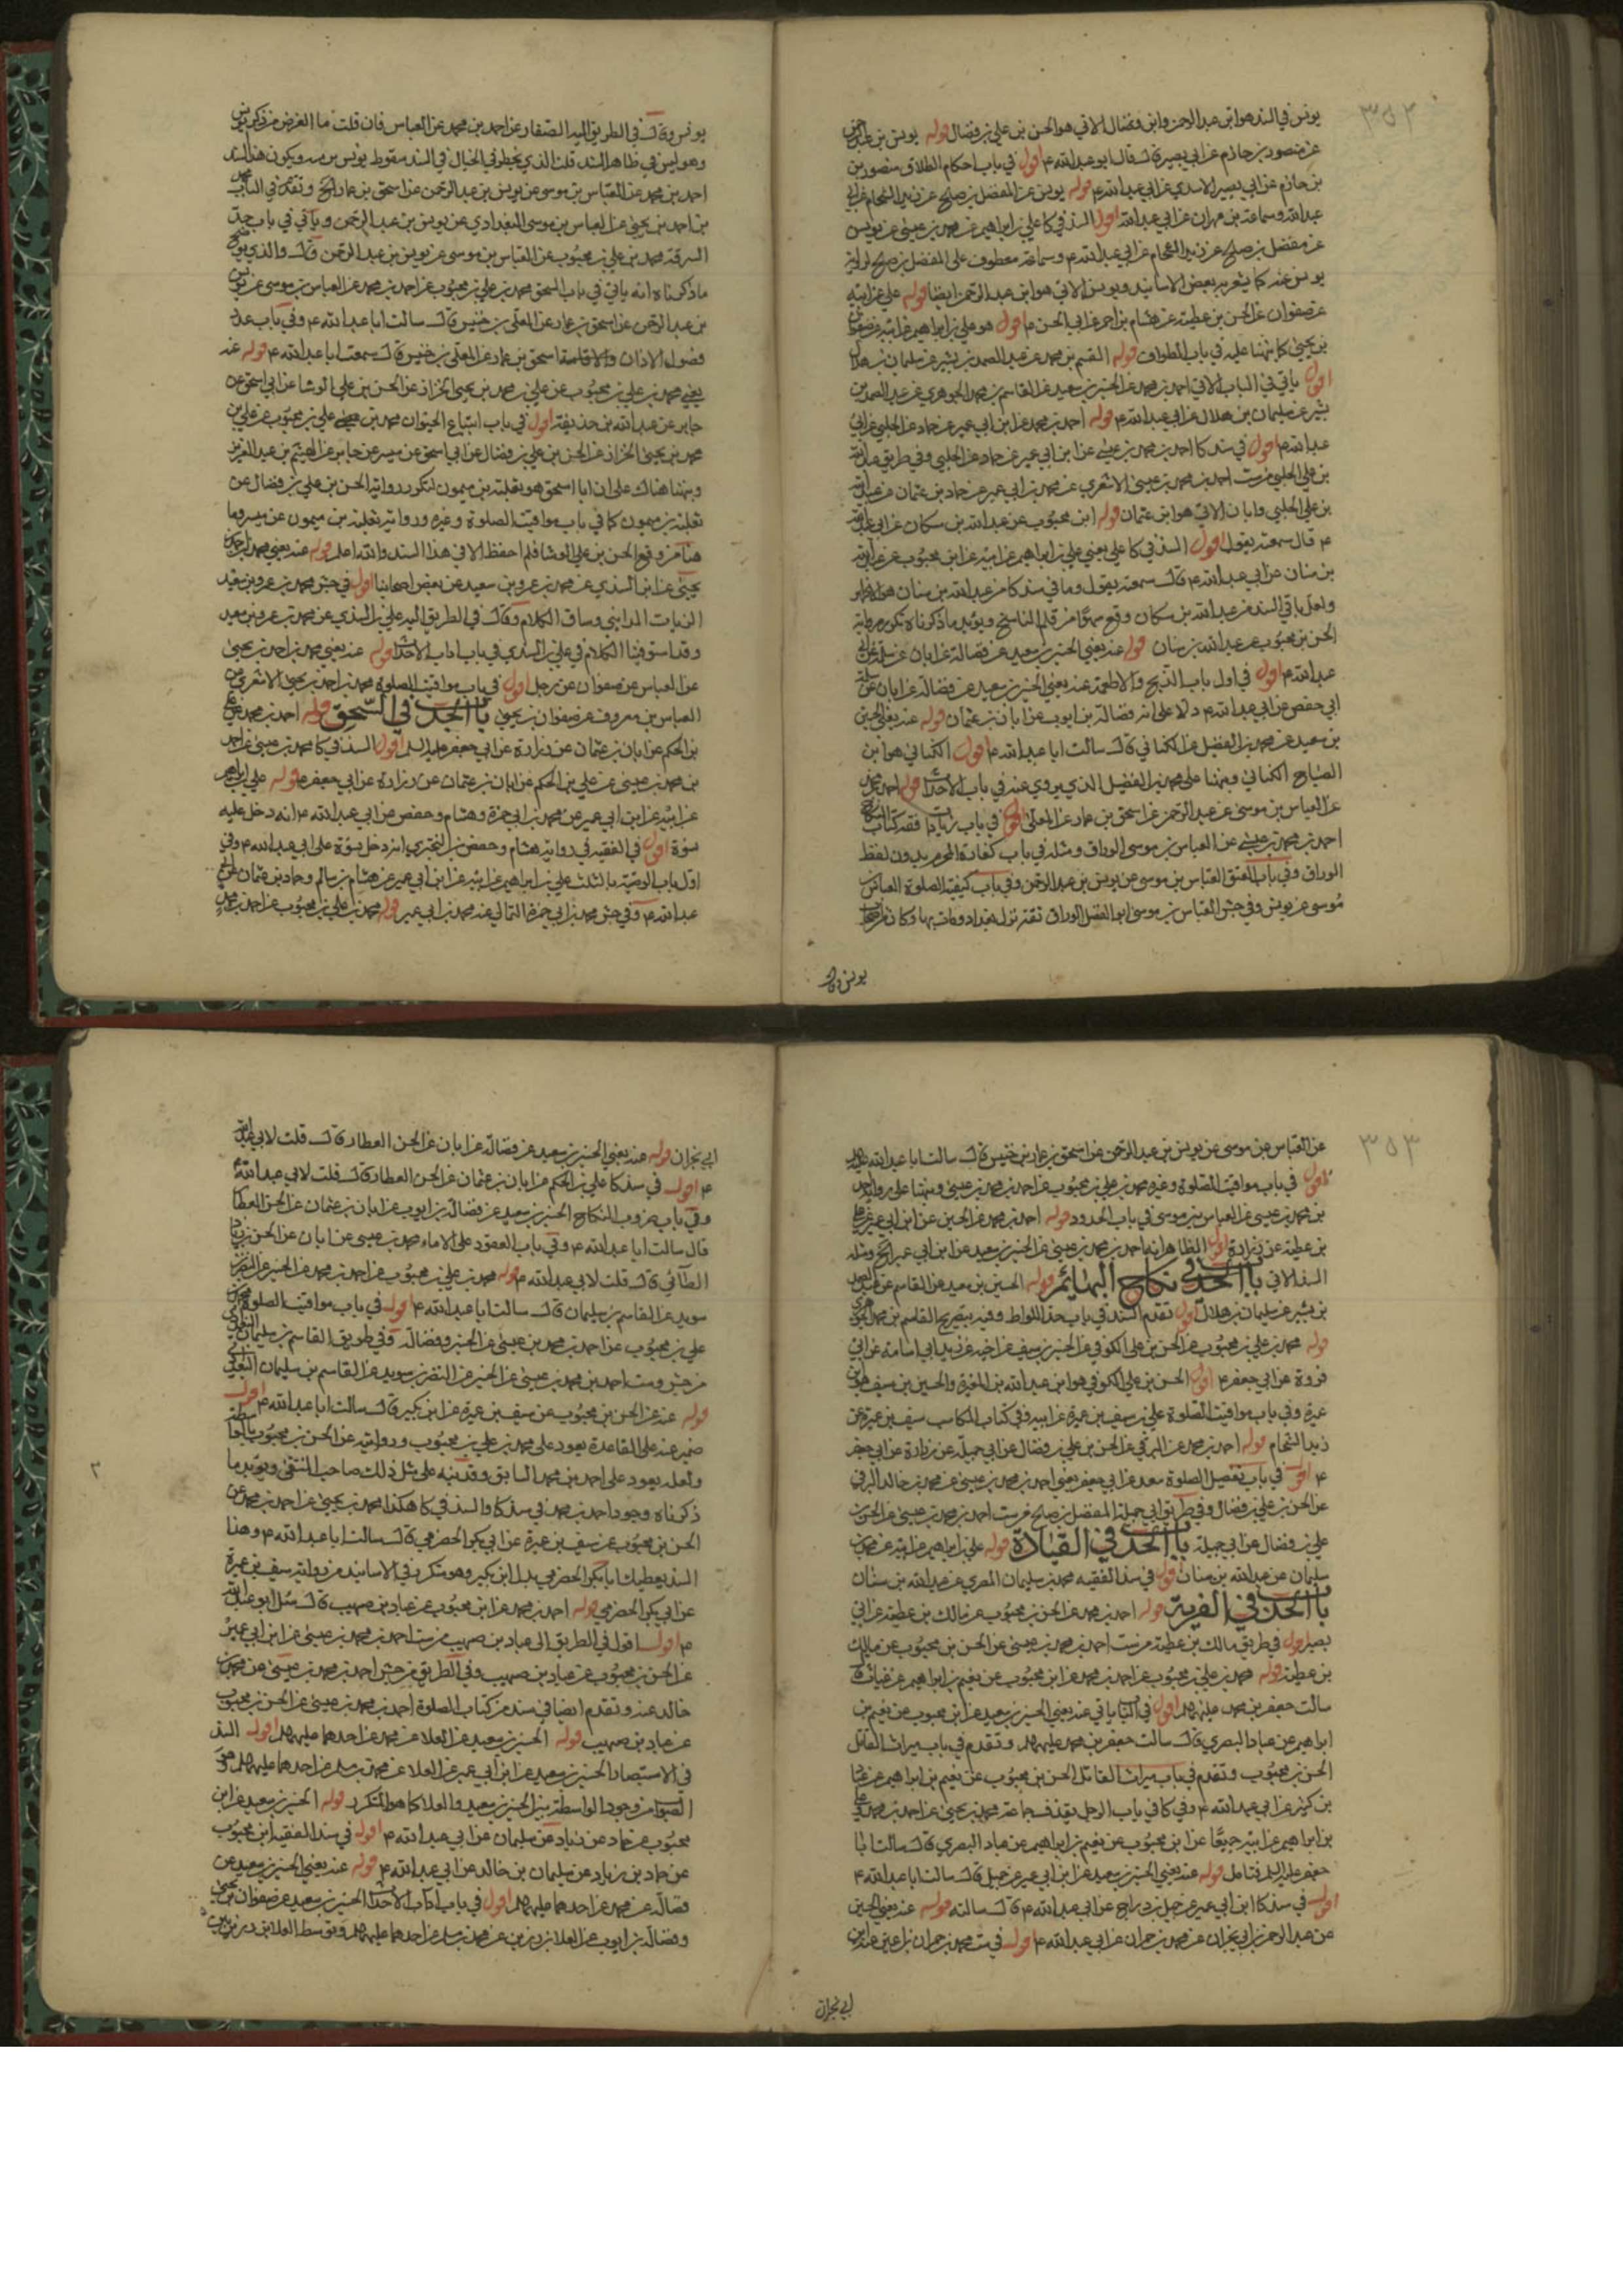 ٣٥٢
يونس في السند هو ابن عبد الرحمن وابن فضال الاتي هو الحسن بن علي بن فضال قوله يونس بن
عن منصور بن حازم عن ابي بصير قال قال ابو عبد الله ع اقول في باب احكام الطلاق منصور بن
بن حازم عن ابي بصير الاسدي عن ابي عبد الله ع قوله يونس عن المفضل بن صالح عن زيد الشحام عن ابي
عبد الله وسماعة بن مهران عن ابي عبد الله اقول السند في كا علي بن ابراهيم عن محمد بن عيسى عن يونس
عن مفضل بن صالح عن زيد الشحام عن ابي عبد الله ع وسماعة معطوف على المفضل بن صالح لرواية
يونس عنه كما يشعر به بعض الاسانيد ويونس الاتي هو ابن عبد الرحمن ايضا قوله علي عن ابيه
عن صفوان عن الحسن بن عطية عن هشام بن احمر عن ابي الحسن ع اقول هو علي بن ابراهيم عن ابيه عن صفوان
بن يحيى كما نبهنا عليه في باب الطواف قوله القسم بن محمد عن عبد الصمد بن بشير عن سليمان بن هلال
اقول ياتي في الباب الاتي احمد بن محمد عن الحسين بن سعيد عن القاسم بن محمد الجوهري عن عبد الصمد بن
بشير عن سليمان بن هلال عن ابي عبد الله ع قوله احمد بن محمد عن ابن ابي عمير عن حماد عن الحلبي عن ابي
عبد الله ع اقول في سند كا احمد بن محمد بن عيسى عن ابن ابي عمير عن حماد عن الحلبي وفي طريق عبد الله
بن علي الحلبي من ست احمد بن محمد بن عيسى الاشعري عن محمد بن ابي عمير عن حماد بن عثمان عن عبد الله
بن علي الحلبي وابان الاتي هو ابن عثمان قوله ابن محبوب عن عبد الله بن مسكان عن ابي عبد الله
ع قال سمعته يقول اقول السند في كا علي يعني علي بن ابراهيم عن ابيه عن ابن محبوب عن عبد الله
بن سنان عن ابي عبد الله ع قال سمعته يقول وما في سند كا من عبد الله بن سنان هو الظاهر
ولعل ما في السند من عبد الله بن مسكان وقع سهوا من قلم الناسخ ويؤيد ما ذكرناه تكرر رواية
الحسن بن محبوب عن عبد الله بن سنان قوله عنه يعني الحسين بن سعيد عن فضالة عن ابان عن سلمة عن ابي
عبد الله ع اقول في اول باب الذبح والاطعمة عنه يعني الحسين بن سعيد عن فضالة عن ابان عن سلمة
ابي حفص عن ابي عبد الله ع دلالا على انه فضالة بن ايوب عن ابان بن عثمان قوله عنه يعني الحسين
بن سعيد عن محمد بن الفضيل عن الكناني قال سالت ابا عبد الله ع اقول الكناني هو ابو
الصباح الكناني ونبهنا على محمد بن الفضيل الذي يروي عنه في باب الاحداث قوله احمد بن محمد
عن العباس بن موسى عن عبد الرحمن عن اسحق بن عمار عن المعلى اقول في باب زيادات فقه كتاب النكاح
احمد بن محمد بن عيسى عن العباس بن موسى الوراق ومثله في باب كفارة المحرم بدون لفظ
الوراق وفي باب العتق العباس بن موسى عن يونس بن عبد الرحمن وفي باب كيفية الصلوة العباس بن
موسى عن يونس وفي جش العباس بن موسى ابو الفضل الوراق ثقة نزل بغداد ومات بها وكان من اصحاب
يونس وقال
يونس وقال في الطريق اليه الصفار عن احمد بن محمد عن العباس فان قلت ما الغرض من ذكر يونس
وهو ليس في ظاهر السند قلت الذي يخطر في الخيال في السند سقوط يونس من ويكون هذا السند
احمد بن محمد عن العباس بن موسى عن يونس بن عبد الرحمن عن اسحق بن عمار الخ وتقدم في الباب
بن احمد بن يحيى عن العباس بن موسى البغدادي عن يونس بن عبد الرحمن وياتي في باب حد
السرقة محمد بن علي بن محبوب عن العباس بن موسى عن يونس بن عبد الرحمن قال والذي يوضح
ما ذكرناه انه ياتي في باب السحق محمد بن علي بن محبوب عن احمد بن محمد عن العباس بن موسى عن يونس
بن عبد الرحمن عن اسحق بن عمار عن المعلى بن خنيس قال سالت ابا عبد الله ع وفي باب عدد
فصول الاذان والاقامة اسحق بن عمار عن المعلى بن خنيس قال سمعت ابا عبد الله ع قوله عنه
يعني محمد بن علي بن محبوب عن علي بن محمد بن يحيى الخزاز عن الحسن بن علي الوشا عن ابي اسحق عن
جابر عن عبد الله بن جذيفة اقول في باب ابتياع الحيوان محمد بن علي بن محبوب عن علي بن
محمد بن يحيى الخزاز عن الحسن بن علي بن فضال عن ابي اسحق عن ميسر عن جابر عن الهيثم بن عبد العزيز
ونبهنا هناك على ان ابا اسحق هو ثعلبة بن ميمون لتكرر رواية الحسن بن علي بن فضال عن
ثعلبة بن ميمون كما في باب مواقيت الصلوة وغيره ورواية ثعلبة بن ميمون عن ميسر وما
هنا من وقوع الحسن بن علي الوشا فلم احفظ الا في هذا السند والله اعلم قوله عنه يعني محمد بن احمد بن
يحيى عن ابن السندي عن محمد بن عمرو بن سعيد عن بعض اصحابنا اقول في جش محمد بن عمرو بن سعيد
الزيات المدايني وساق الكلام وقال في الطريق اليه علي بن السندي عن محمد بن عمرو بن سعيد
وقد استوفينا الكلام في علي بن السندي في باب اداب الاحداث قوله عنه يعني محمد بن احمد بن يحيى
عن العباس عن صفوان عن رجل اقول في باب مواقيت الصلوة محمد بن احمد بن يحيى الاشعري عن
العباس بن معروف عن صفوان بن يحيى باب الحد في السحق قوله احمد بن محمد عن علي
بن الحكم عن ابان بن عثمان عن زرارة عن ابي جعفر عليه السلم اقول السند في كا محمد بن عيسى عن احمد
بن محمد بن عيسى عن علي بن الحكم عن ابان بن عثمان عن زرارة عن ابي جعفر ع قوله علي بن ابراهيم
عن ابيه عن ابن ابي عمير عن محمد بن ابي حمزة وهشام وحفص عن ابي عبد الله ع انه دخل عليه
نسوة اقول في الفقيه في رواية هشام وحفص بن البختري انه دخل نسوة على ابي عبد الله ع وفي
اول باب الوصية بالثلث علي بن ابراهيم عن ابيه عن ابن ابي عمير عن هشام بن سالم وحماد بن عثمان عن ابي
عبد الله ع وفي جش محمد بن ابي حمزة الثمالي عنه محمد بن ابي عمير قوله محمد بن علي بن محبوب عن احمد بن محمد
٣٥٣
عن العباس بن موسى عن يونس بن عبد الرحمن عن اسحق بن عمار بن خنيس قال سالت ابا عبد الله عليه
اقول في باب مواقيت الصلوة وغيره محمد بن علي بن محبوب عن احمد بن محمد بن عيسى ونبهنا على رواية احمد
بن محمد بن عيسى عن العباس بن موسى في باب الحدود قوله احمد بن محمد عن الحسين عن ابن ابي عمير عن علي
بن عطية عن زرارة اقول الظاهر انه احمد بن محمد بن عيسى عن الحسين بن سعيد عن ابن ابي عمير الخ ومثله
السند الاتي باب الحد في نكاح البهائم قوله الحسين بن سعيد عن القاسم عن عبد الصمد
بن بشير عن سليمان بن هلال اقول تقدم السند في باب حد اللواط وفيه بتصريح القاسم بن محمد الجوهري
قوله محمد بن علي بن محبوب عن الحسن بن علي الكوفي عن الحسين بن سيف عن اخيه عن زيد ابي اسامة عن ابي
فروة عن ابي جعفر ع اقول الحسن بن علي الكوفي هو ابن عبد الله بن المغيرة والحسين بن سيف هو ابن
عميرة وفي باب مواقيت الصلوة علي بن سيف بن عميرة عن ابيه وفي كتاب المكاسب سيف بن عميرة عن
زيد الشحام قوله احمد بن محمد عن البرقي عن الحسن بن علي بن فضال عن ابي جميلة عن زرارة عن ابي جعفر
ع اقول في باب تفصيل الصلوة سعد عن ابي جعفر يعني احمد بن محمد بن عيسى عن محمد بن خالد البرقي
عن الحسن بن علي بن فضال وفي طريق ابي جميلة المفضل بن صالح من ست احمد بن محمد بن عيسى عن الحسن بن
علي بن فضال عن ابي جميلة باب الحد في القيادة قوله علي بن ابراهيم عن ابيه عن محمد بن
سليمان عن عبد الله بن سنان اقول في سند الفقيه محمد بن سليمان المصري عن عبد الله بن سنان
باب الحد في الفرية قوله احمد بن محمد عن الحسن بن محبوب عن مالك بن عطية عن ابي
بصير اقول في طريق مالك بن عطية من ست احمد بن محمد بن عيسى عن الحسن بن محبوب عن مالك
بن عطية قوله محمد بن علي بن محبوب عن احمد بن محمد عن ابن محبوب عن نعيم بن ابراهيم عن غياث قال
سالت جعفر بن محمد عليهما السلم اقول في ياتي عنه يعني الحسين بن سعيد عن ابن محبوب عن نعيم بن
ابراهيم عن عباد البصري قال سالت جعفر بن محمد عليهما السلم وتقدم في باب ميراث القاتل
الحسن بن محبوب وتقدم في باب ميراث القاتل الحسن بن محبوب عن نعيم بن ابراهيم عن عباد
بن كثير عن ابي عبد الله ع وفي كافي باب الرجل يقذف جماعة محمد بن يحيى عن احمد بن محمد وعلي
بن ابراهيم عن ابيه جميعا عن ابن محبوب عن نعيم بن ابراهيم عن عباد البصري قال سالت ابا
جعفر عليه السلم فتامل قوله عنه يعني الحسين بن سعيد عن ابن ابي عمير عن جميل قال سالت ابا عبد الله ع
اقول في سند كا ابن ابي عمير عن جميل بن دراج عن ابي عبد الله ع قال سالته قوله عنه يعني الحسين
عن عبد الرحمن بن ابي نجران عن محمد بن حمران عن ابي عبد الله ع اقول في ست محمد بن حمران بن اعين عنه ابن
ابي نجران
ابي نجران قوله عنه يعني الحسين بن سعيد عن فضالة عن ابان عن الحسن العطار قال قلت لابي عبد الله
ع اقول في سند كا علي بن الحكم عن ابان بن عثمان عن الحسن العطار قال قلت لابي عبد الله ع
وفي باب ضروب النكاح الحسين بن سعيد عن فضالة بن ايوب عن ابان بن عثمان عن الحسن العطار
قال سالت ابا عبد الله ع وفي باب العقود على الاماء محمد بن عيسى عن ابان عن الحسن بن زياد
الطائي قال قلت لابي عبد الله ع قوله محمد بن علي بن محبوب عن احمد بن محمد عن الحسين عن النضر بن
سويد عن القاسم بن سليمان قال سالت ابا عبد الله ع اقول في باب مواقيت الصلوة محمد بن
علي بن محبوب عن احمد بن محمد بن عيسى عن الحسين وفضالة وفي طريق القاسم بن سليمان
من جش وست احمد بن محمد بن عيسى عن الحسين عن النضر بن سويد عن القاسم بن سليمان
قوله عنه عن الحسن بن محبوب عن سيف بن عميرة عن ابن بكير قال سالت ابا عبد الله ع اقول
ضمير عنه على القاعدة يعود على محمد بن علي بن محبوب وروايته عن الحسن بن محبوب بواسطة
ولعله يعود على احمد بن محمد السابق وقد نبه على مثل ذلك صاحب المنتقى ويؤيد ما
ذكرناه وجود احمد بن محمد في سند كا والسند في كا هكذا محمد بن يحيى عن احمد بن محمد عن
الحسن بن محبوب عن سيف بن عميرة عن ابي بكر الحضرمي قال سالت ابا عبد الله ع وهذا
السند يعطيك ابا بكر الحضرمي بدل ابن بكير وهو متكرر في الاسانيد من رواية سيف بن عميرة
عن ابي بكر الحضرمي قوله احمد بن محمد عن ابن محبوب عن عباد بن صهيب قال سئل ابو عبد الله
ع اقول اقول في الطريق الى عباد بن صهيب من ست احمد بن محمد بن عيسى عن ابن ابي عمير
عن الحسن بن محبوب عن عباد بن صهيب وفي الطريق من جش احمد بن محمد بن عيسى عن محمد بن
خالد عنه وتقدم ايضا في سند من كتاب الصلوة احمد بن محمد بن عيسى عن الحسن بن محبوب
عن عباد بن صهيب قوله الحسين بن سعيد عن العلا عن محمد عن احدهما عليهما السلم اقول السند
في الاستبصار الحسين بن سعيد عن ابن ابي عمير عن العلا عن محمد بن مسلم عن احدهما عليهما السلم وهو
الصواب من وجود الواسطة بين الحسين بن سعيد والعلا كما هو المتكرر قوله الحسين بن سعيد عن ابن
محبوب عن حماد عن زياد عن سليمان عن ابي عبد الله ع اقول في سند الفقيه ابن محبوب
عن حماد بن زياد عن سليمان بن خالد عن ابي عبد الله ع قوله عنه يعني الحسين بن سعيد عن
فضالة عن محمد عن احدهما عليهما السلم اقول في باب اداب الاحداث الحسين بن سعيد عن صفوان بن يحيى
وفضالة بن ايوب عن العلا بن رزين عن محمد بن مسلم عن احدهما عليهما السلم وتوسط العلا بن رزين بين